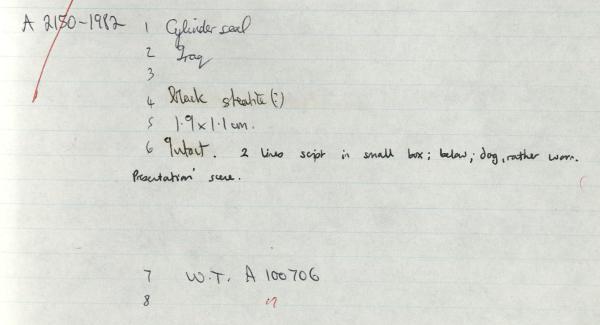 A 2150-1982 1 Cylinder seal
2 Iraq
3
4 Black steatite (?)
5 1.9 x 1.1 cm.
6 Intact. 2 lines script in small box; below; dog, rather worn.
Presentation' scene.
7 W.T. A 100706
8